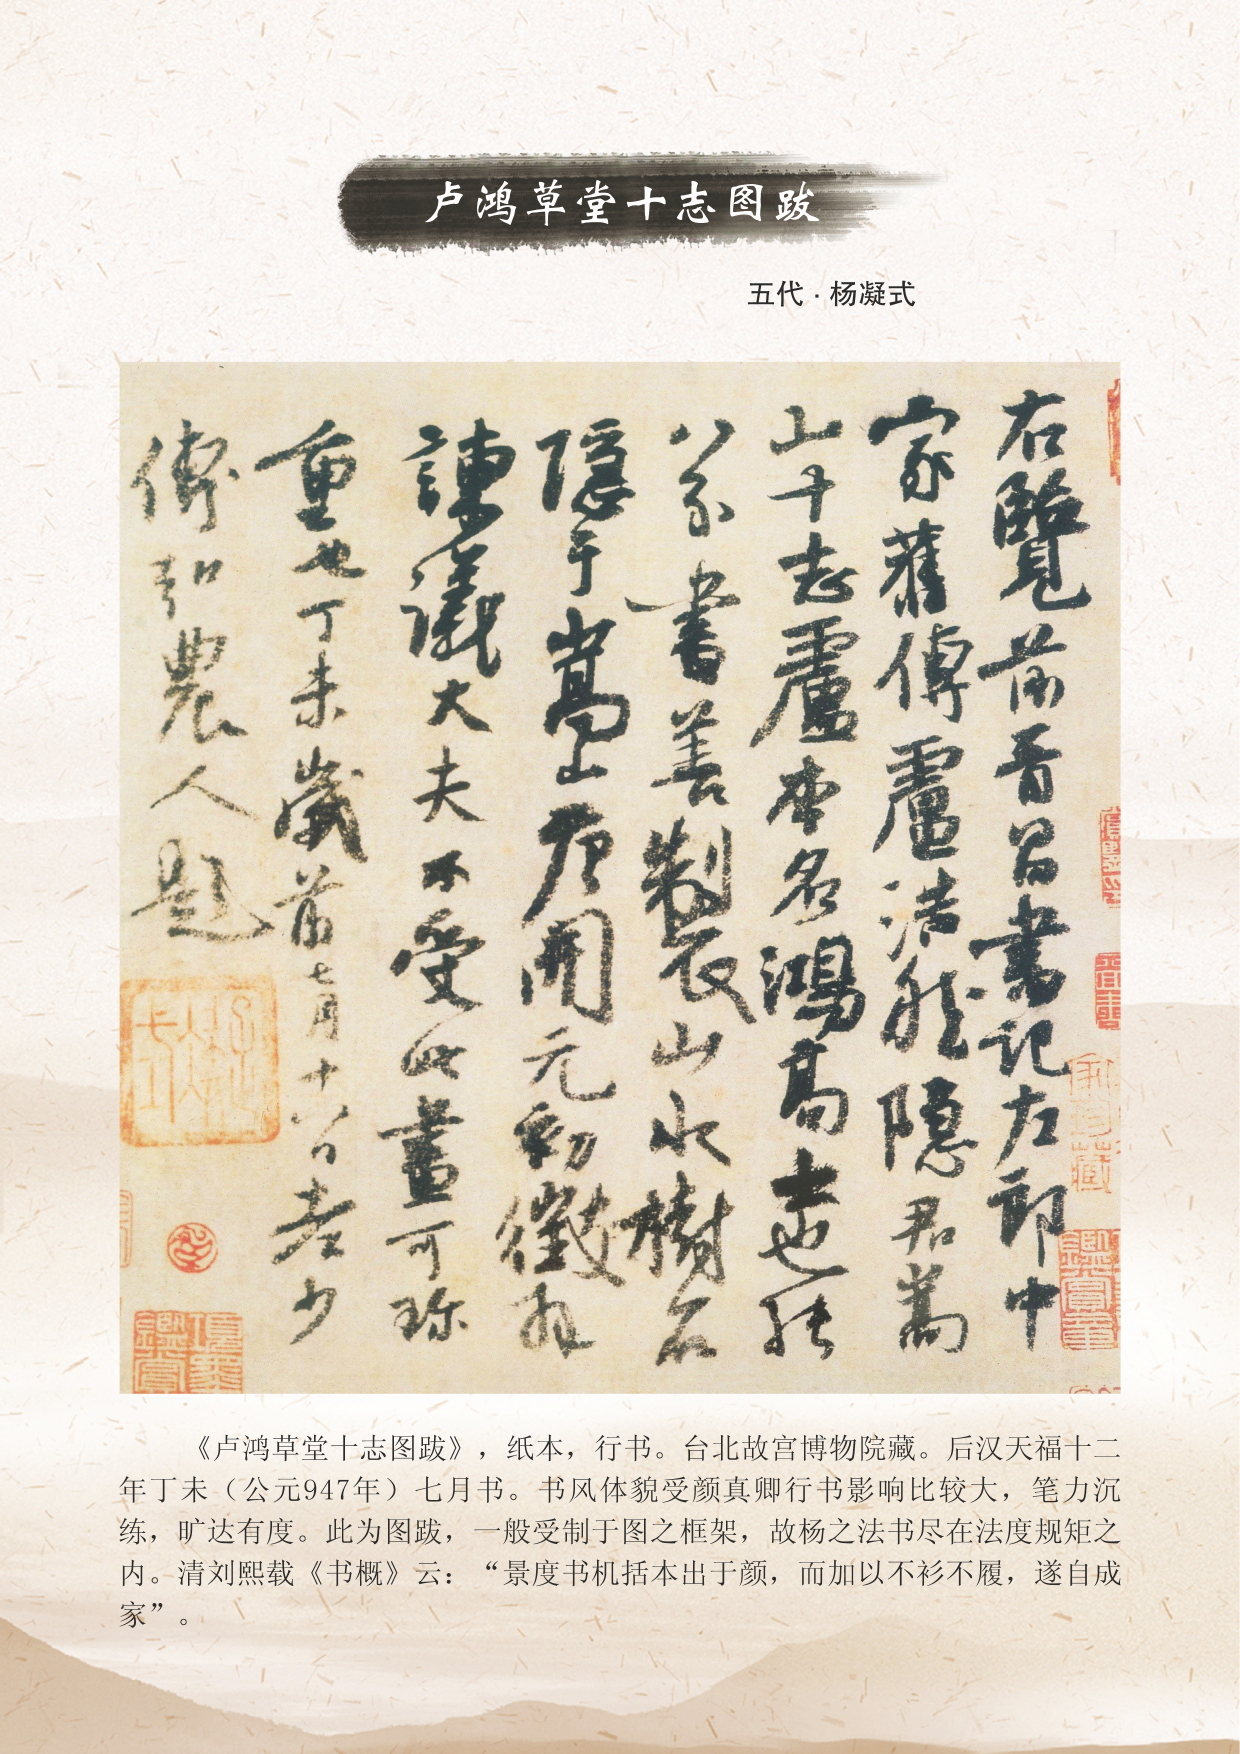 卢鸿草堂十志图跋
五代·杨凝式
右覽前晉昌書記左郎中
家舊傳盧浩然隱君嵩
山十志盧本名鴻高士也能
八分書善製山水樹石
隱于嵩山唐開元初徵拜
諫議大夫不受此畫可珍
重也丁未歲前七月十八日老少
傅弘農人題
《卢鸿草堂十志图跋》，纸本，行书。台北故宫博物院藏。后汉天福十二
年丁未（公元947年）七月书。书风体貌受颜真卿行书影响比较大，笔力沉
练，旷达有度。此为图跋，一般受制于图之框架，故杨之法书尽在法度规矩之
内。清刘熙载《书概》云：“景度书机括本出于颜，而加以不衫不履，遂自成
家”。